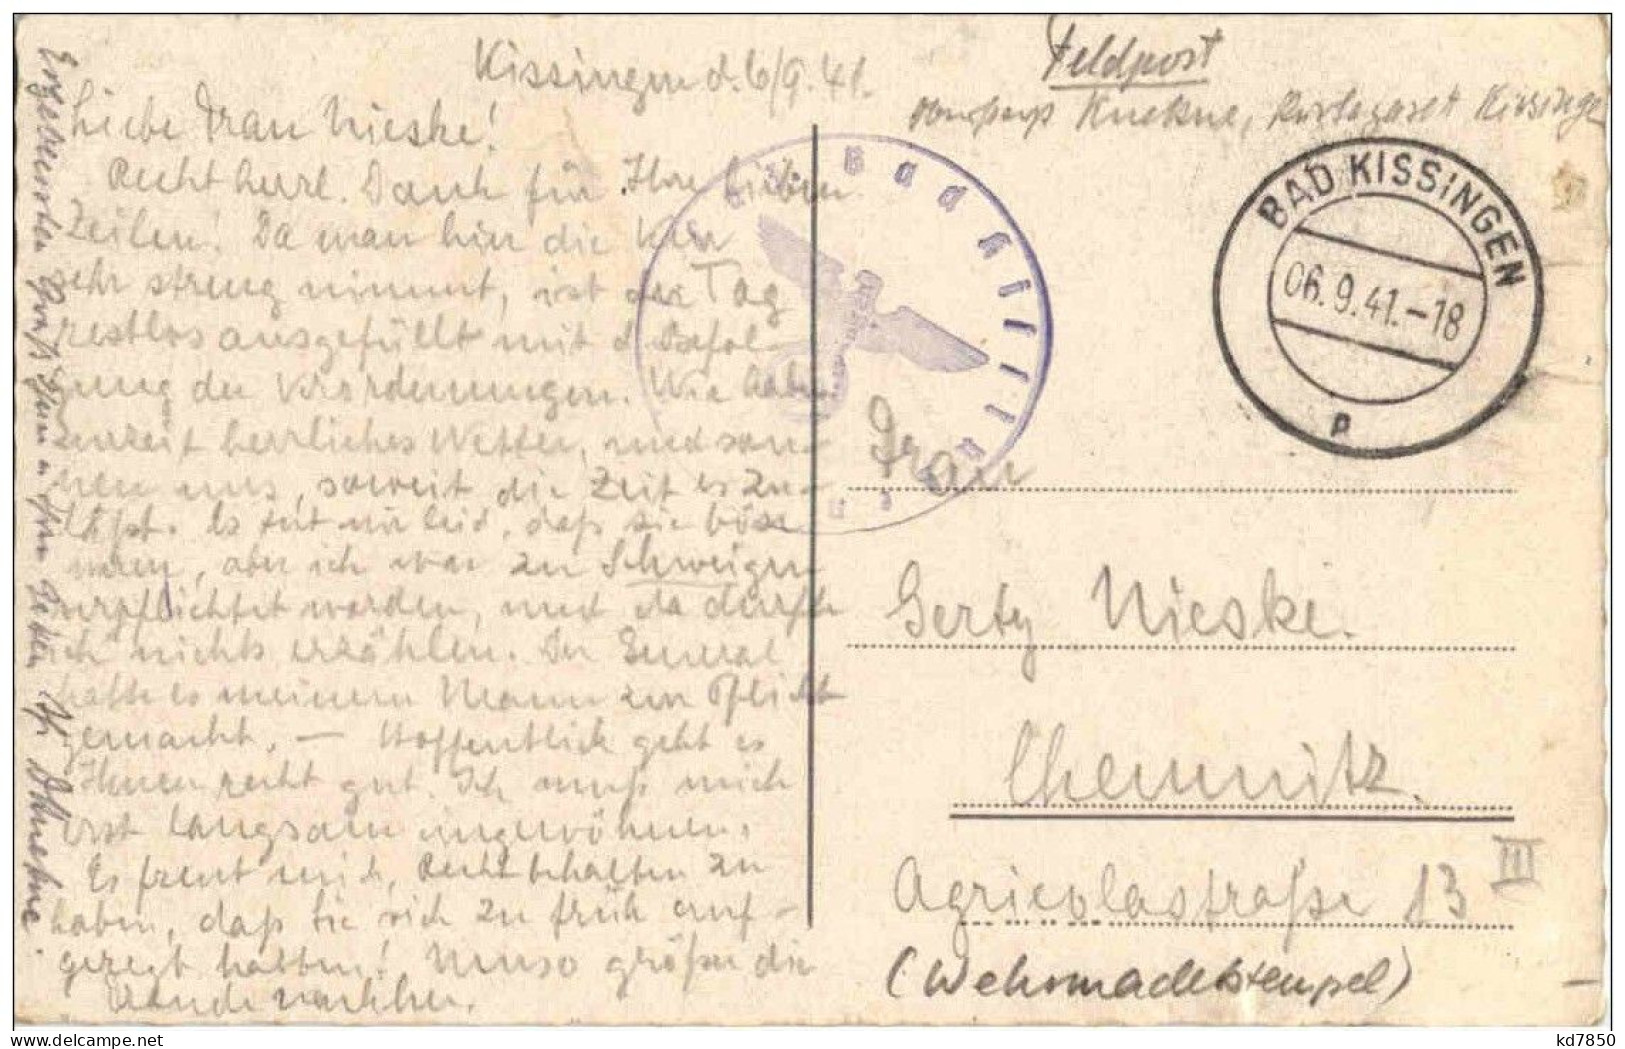 Feldpost
Kissingen d. 6/9.41.
Kissingen
Liebe Frau Nieske!
Recht herzl. Dank für Ihre lieben
Zeilen! Da man hier die Kur
sehr streng nimmt, ist der Tag
restlos ausgefüllt mit d. Befol-
gung der Verordnungen. Wir haben
zurzeit herrliches Wetter, und son-
nen uns, soweit die Zeit es zu-
läßt. Es tut mir leid, daß sie böse
waren, aber ich war zu Schweigen
verpflichtet worden, und da durfte
ich nichts erzählen. Der General
hatte es meinem Mann zur Pflicht
gemacht. — Hoffentlich geht es
Ihnen recht gut. Ich muß mich
erst langsam eingewöhnen.
Es freut mich, Recht behalten zu
haben, daß Sie sich zu früh auf-
geregt hatten! Umso größer die
Freude nachher.
BAD KISSINGEN
06.9.41.-18
p
Bad Kissingen
Frau
Gerty Nieske.
Chemnitz.
Agricolastraße 13 III
(Wehrmachtstempel)
kd7850